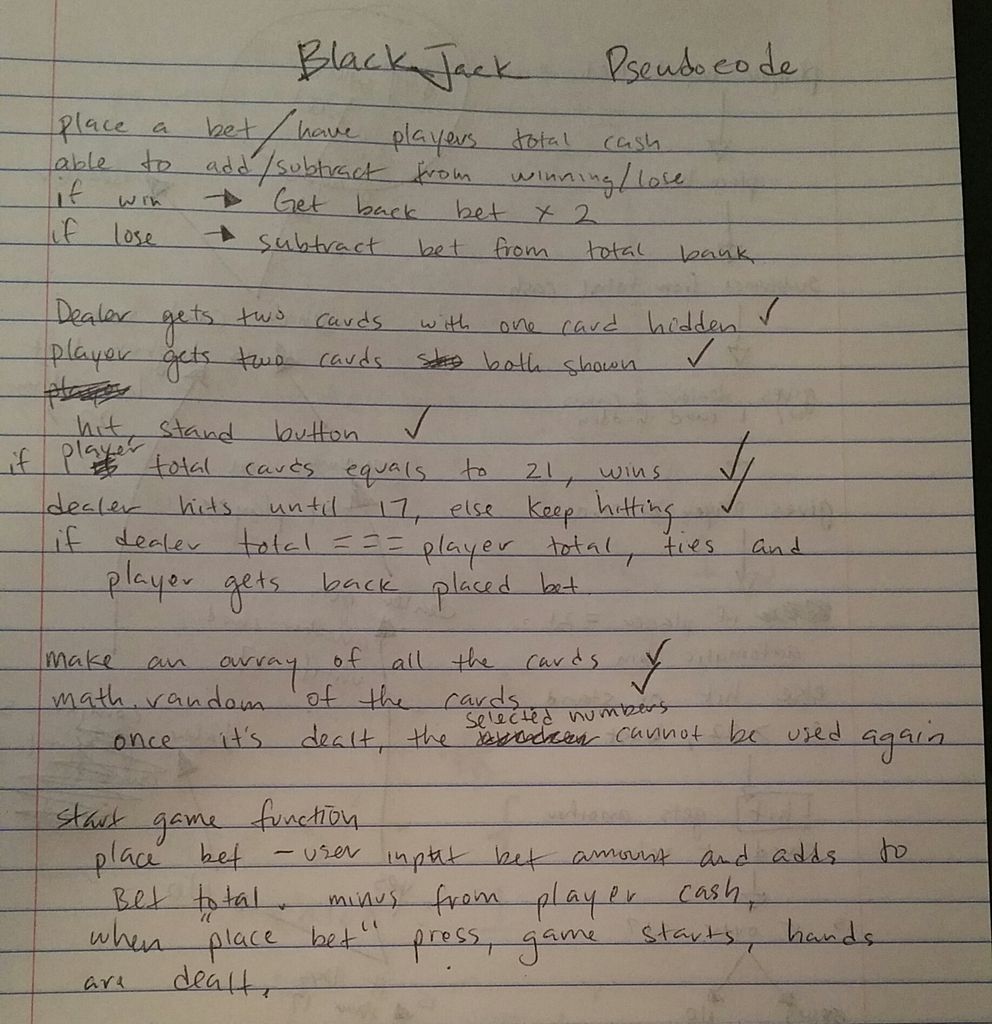 Black Jack Pseudocode
place a bet/have players total cash
able to add/subtract from winning/lose
if win → Get back bet x 2
if lose → subtract bet from total bank
Dealer gets two cards with one card hidden ✓
player gets two cards both shown ✓
hit, stand button ✓
if player total cards equals to 21, wins ✓
dealer hits until 17, else keep hitting ✓
if dealer total === player total, ties and
player gets back placed bet.
make an array of all the cards ✓
math.random of the cards ✓
once it's dealt, the selected numbers cannot be used again
start game function
place bet - user input bet amount and adds to
Bet total. minus from player cash,
when "place bet" press, game starts, hands
are dealt,